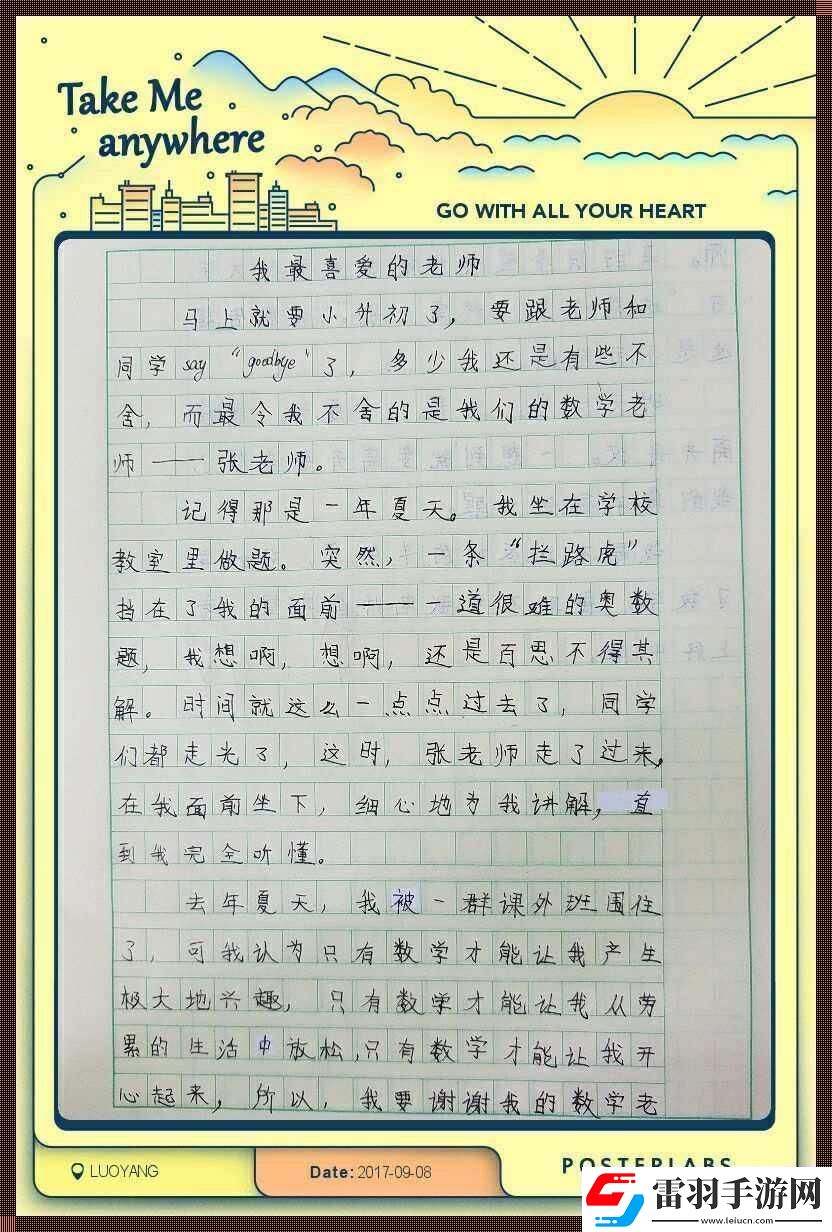 Take Me
anywhere
GO WITH ALL YOUR HEART
我最喜爱的老师
马上就要小升初了，要跟老师和
同学say“goodbye”了，多少我还是有些不
舍，而最令我不舍的是我们的数学老
师——张老师。
记得那是一年夏天。我坐在学校
教室里做题。突然，一条“拦路虎”
挡在了我的面前——一道很难的奥数
题，我想啊，想啊，还是百思不得其
解。时间就这么一点点过去了，同学
们都走光了，这时，张老师走了过来，
在我面前坐下，细心地为我讲解，直
到我完全听懂。
去年夏天，我被一群课外班围住
了，可我认为只有数学才能让我产生
极大地兴趣，只有数学才能让我从劳
累的生活中放松，只有数学才能让我开
心起来，所以，我要谢谢我的数学老
LUOYANG
Date: 2017-09-08
POSTERLABS
雷羽手游网
www.leiucn.com